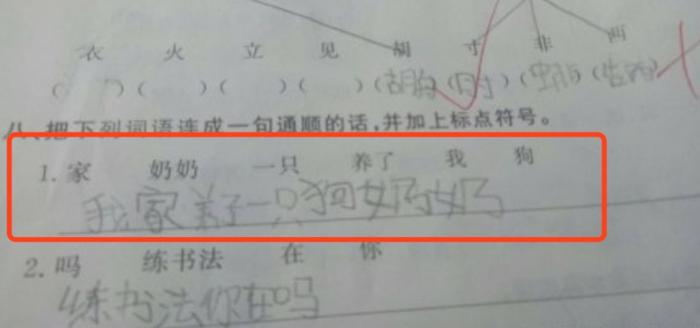 衣 火 立 见 胡 寸 非 两
( )( )( )( )(胡 )( )( )( )
八、把下列词语连成一句通顺的话,并加上标点符号。
1. 家 奶奶 一只 养了 我 狗
我家养了一只狗奶奶
2. 吗 练书法 在 你
练书法你在吗